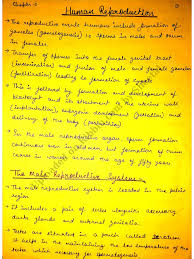 Chapter-
Human Reproduction
→ The reproductive events humans include formation of
gametes (gametogenesis) ie Sperms in males and ovum
in females.
→ Transfer of sperms into the female genital tract
(insemination) and fusion of male and female gametes
(fertilisation) leading to formation of zygote
→ This is followed by formation and development of
blastocyst and its attachment to the uterine wall
(implantation), embryonic development (gestation) and
delivery of the baby (parturition)
→ In the male reproductive organ sperm formation
continues even in old men, but formation of ovum
ceases in women around the age of fifty years.
The Male Reproductive System:-
→ The male reproductive system is located in the pelvis
region
→ It includes a pair of testes alongwith accessory
ducts, glands and external genitalia.
→ Testes are situated in a pouch called
It helps in the maintaining the low temperature of the
testes which necessary for spermatogenesis.